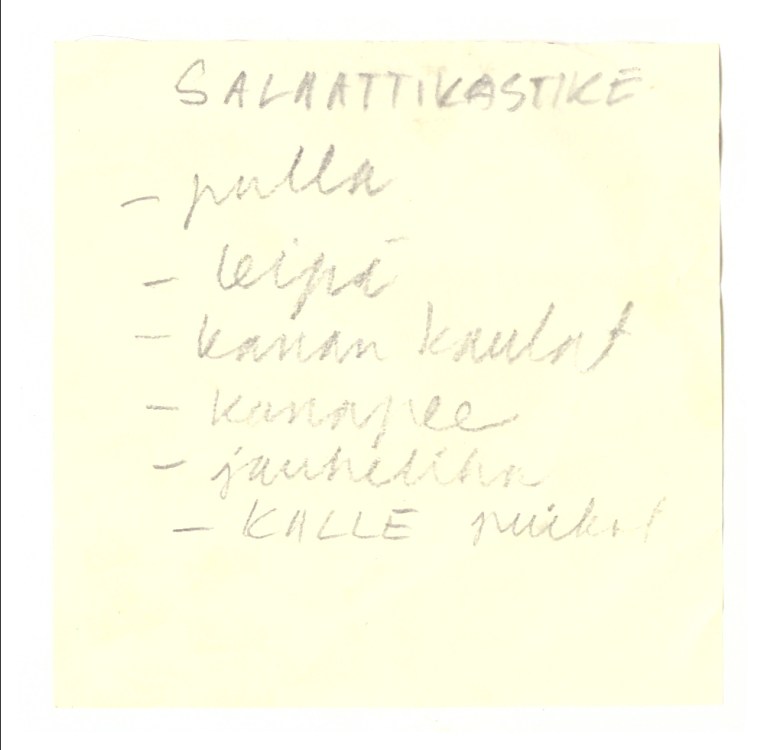 SALAATTIKASTIKE
- pulla
- leipä
- kanan kaulat
- kanapee
- jauheliha
- KALLE puikot